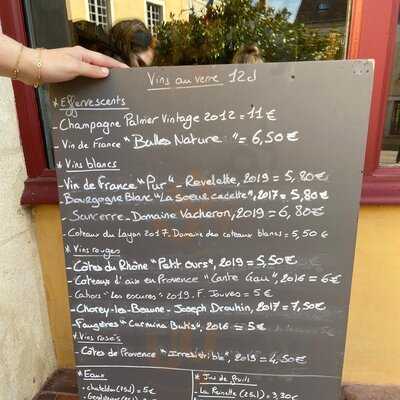 Vins au verre 12cl
* Effervescents
- Champagne Palmer Vintage 2012 = 11 €
- Vin de France "Bulles Nature" = 6,50€
* Vins blancs
- Vin de France "Pur" - Revelette, 2019 = 5,80€
- Bourgogne Blanc "La soeur cadette", 2017 = 5,80€
- Sancerre - Domaine Vacheron, 2019 = 6,80€
- Coteaux du Layon 2017. Domaine des coteaux blancs = 5,50 €
* Vins rouges
- Côtes du Rhône "Petit Ours", 2019 = 5,50€
- Coteaux d'aix en Provence "Cante Gau", 2016 = 6€
- Cahors "Les escures" 2019. F. Jouves = 5€
- Chorey-les-Beaune - Joseph Drouhin, 2017 = 7,50€
- Faugères "Carmina Butis", 2016 = 5€
* Vins rosés
- Côtes de Provence "Irresistible", 2019 = 4,50€
* Eaux
- chateldon (75cl) = 5€
* Jus de fruits
- La Reinette (25cl) = 3,30€